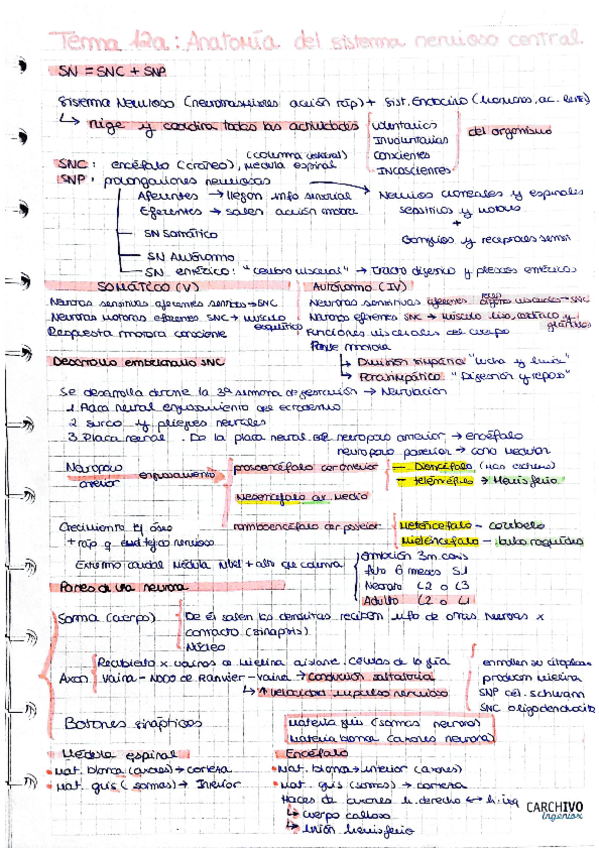 Tema 12a: Anatomía del sistema nervioso central.
SN = SNC + SNP
Sistema Nervioso (neurotransmisores acción ráp) + Sist. Endocrino (Hormonas, ac. lenta)
↳ rige y coordina todas las actividades
voluntarias
Involuntarias
Conscientes
Inconscientes
del organismo
SNC: encéfalo (cráneo), médula espinal
(columna vertebral)
SNP: prolongaciones nerviosas
Aferentes → llegan info sensorial
Eferentes → salen acción motora
SN Somático
SN Autónomo
SN entérico: "cerebro visceral" → tracto digestivo y plexos entéricos
Nervios craneales y espinales
sensitivos y motores
+
Ganglios y receptores sensit
SOMÁTICO (V)
Neuronas sensitivas aferentes → SNC
Neuronas motoras eferentes SNC → músculo
esquelético
Respuesta motora consciente
Autónomo (IV)
Neuronas sensitivas aferentes órganos viscerales → SNC
Neuronas eferentes SNC → músculo liso, cardíaco y
glándulas
Funciones viscerales del cuerpo
Parte motora
↳ División simpática "lucha y huida"
↳ Parasimpático "Digestión y reposo"
Desarrollo embrionario SNC
Se desarrolla durante la 3ª semana de gestación → Neurulación
1. Placa neural engrosamiento del ectodermo
2. surco y pliegues neurales
3. Placa neural. De la placa neural al neuroporo anterior → encéfalo
neuroporo posterior → cono medular
Neuroporo
anterior
engrosamiento
prosoencéfalo car anterior
— Diencéfalo
— telencéfalo → Hemisferio
Mesencéfalo car. Medio
romboencéfalo car posterior
Metencéfalo - cerebelo
Mielencéfalo - bulbo raquídeo
Crecimiento tj óseo
+ ráp q el tejido nervioso
Extremo caudal médula nivel + alto que columna
embrión 3m coxis
feto 6 meses S1
Neonato L2 o L3
Adulto L2 o L1
Partes de una neurona
Soma (cuerpo)
De él salen las dendritas reciben info de otras neuronas x
contacto (sinapsis)
Núcleo
Axón
Recubierto x vainas de mielina aislante. Células de la glía
Vaina - Nodo de Ranvier - vaina → conducción saltatoria
↳ ↑ velocidad impulso nervioso
enrollan su citoplasma
producen mielina
SNP cél. schwann
SNC oligodendrocito
Botones sinápticos
Materia gris (somas neurona)
Materia blanca (axones neurona)
Médula espinal
• Mat. blanca (axones) → corteza
• Mat. gris (somas) → Interior
Encéfalo
• Mat. blanca → inferior (axones)
• Mat. gris (somas) → corteza
Haces de axones h. derecho ↔ h. izq
↳ cuerpo calloso
↳ unión hemisferio
CARCHIVO
Ingeniox